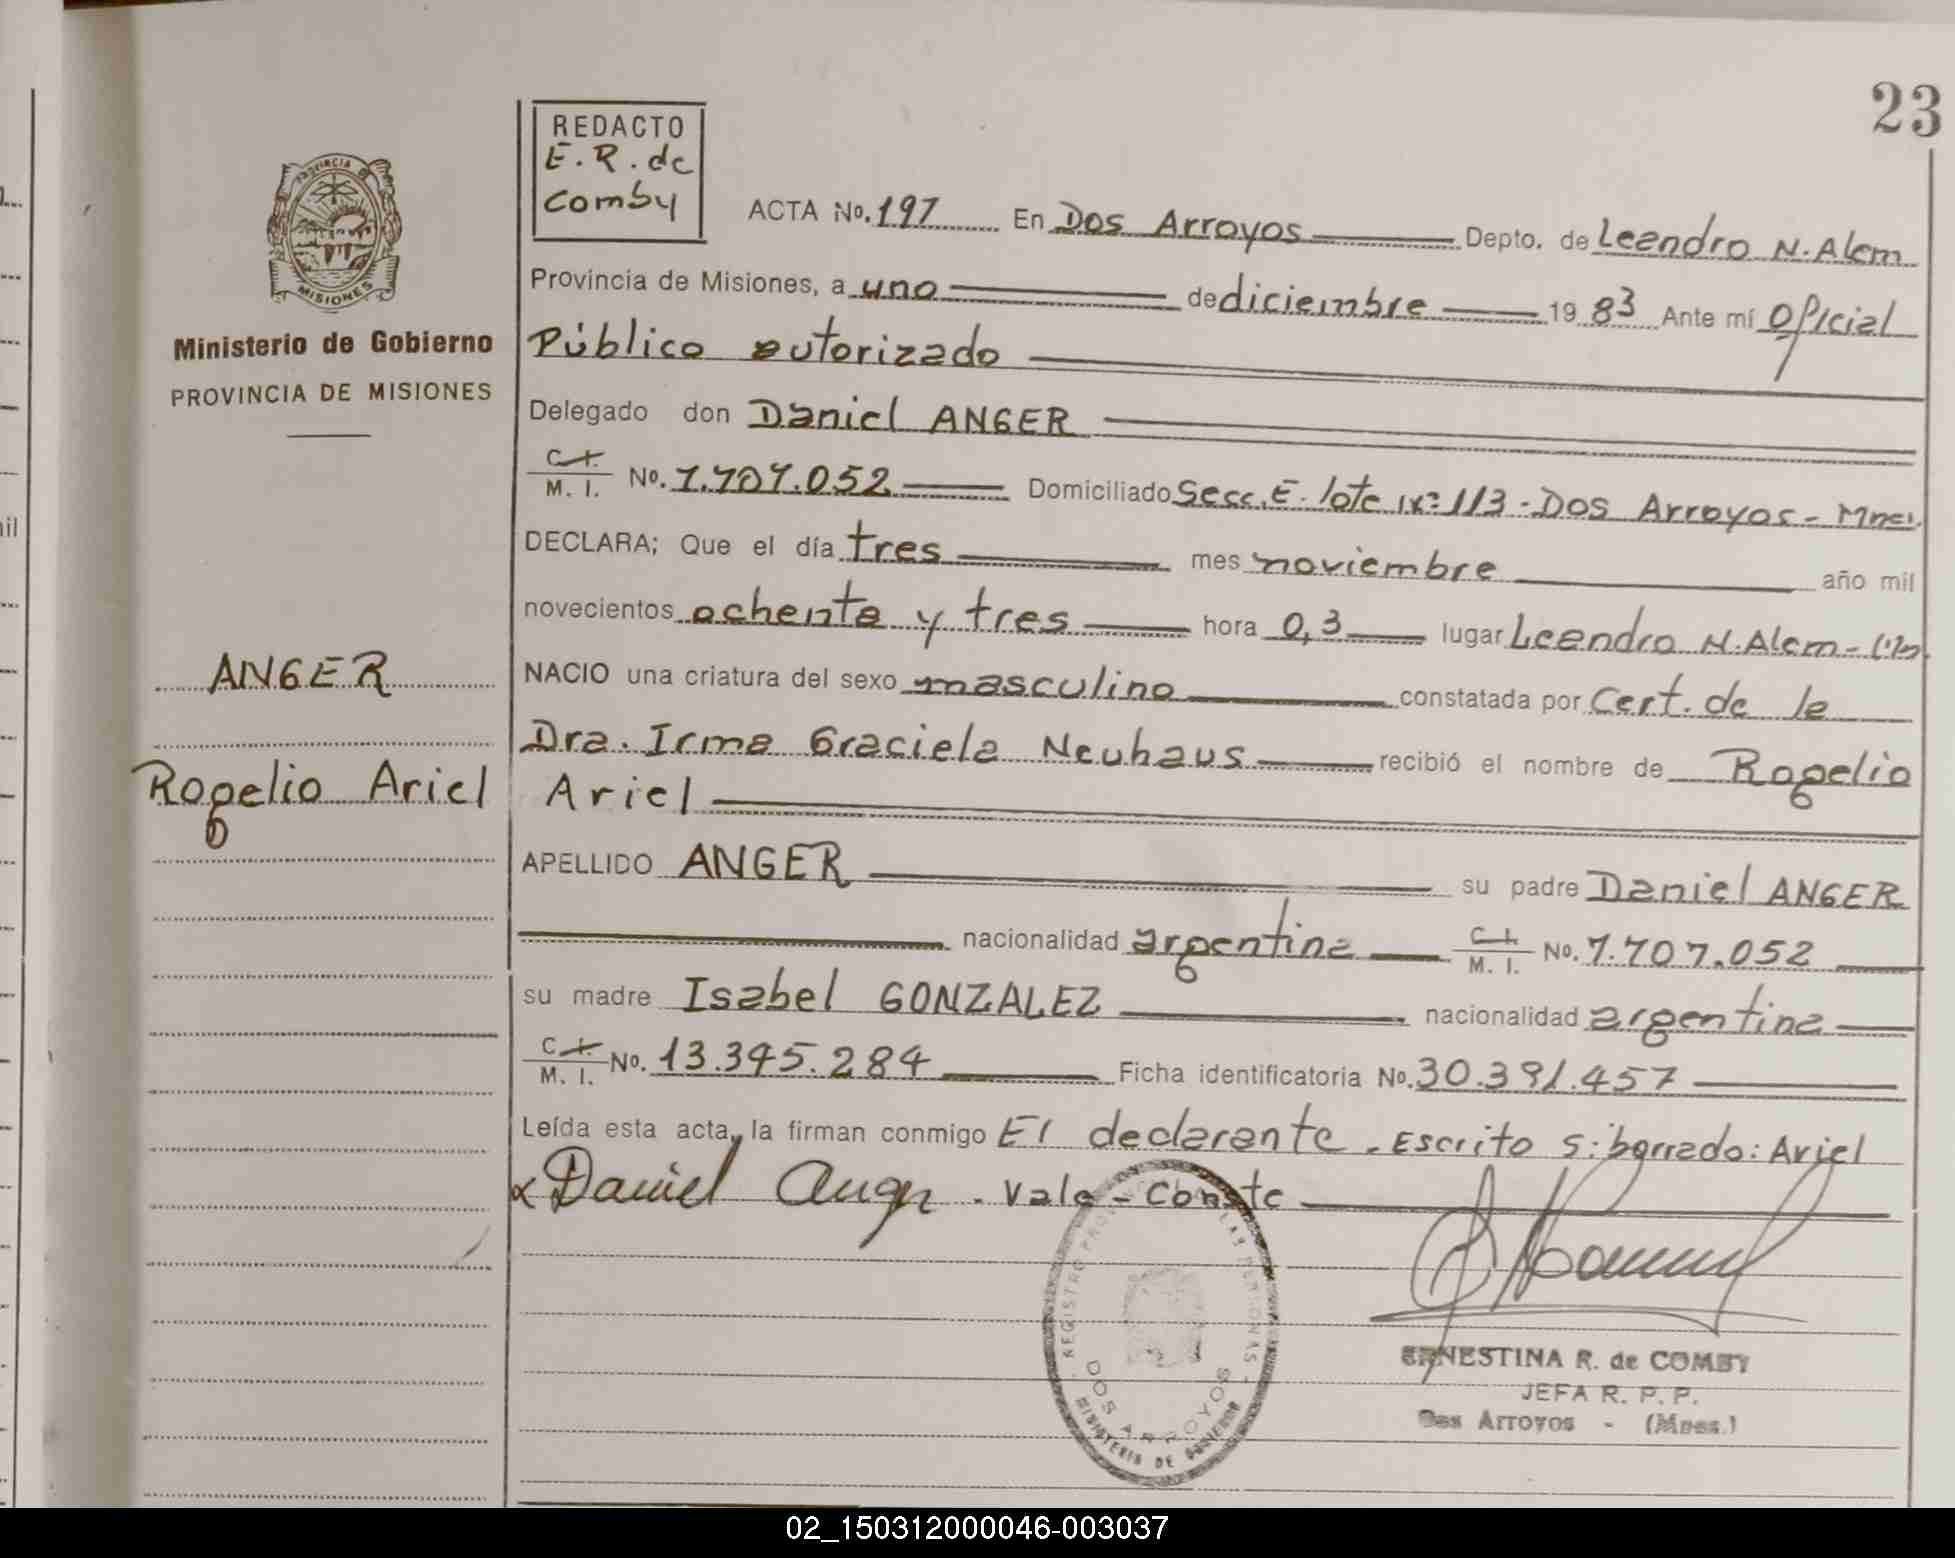 23
PROVINCIA
MISIONES
Ministerio de Gobierno
PROVINCIA DE MISIONES
ANGER
Rogelio Ariel
REDACTO
E. R. de
Comby
ACTA No. 197 En Dos Arroyos Depto. de Leandro N. Alem
Provincia de Misiones, a uno de diciembre 19 83 Ante mí Oficial
Público autorizado
Delegado don Daniel ANGER
C. I. M. I. No. 7.707.052 Domiciliado Secc. E. lote Nº 113 - Dos Arroyos - Mnes.
DECLARA; Que el día tres mes noviembre año mil
novecientos ochenta y tres hora 0,3 lugar Leandro N. Alem -
NACIO una criatura del sexo masculino constatada por Cert. de la
Dra. Irma Graciela Neuhaus recibió el nombre de Rogelio
Ariel
APELLIDO ANGER su padre Daniel ANGER
nacionalidad argentina C. I. M. I. No. 7.707.052
su madre Isabel GONZALEZ nacionalidad argentina
C. I. M. I. No. 13.395.284 Ficha identificatoria No. 30.391.457
Leída esta acta, la firman conmigo El declarante. Escrito s: borrado: Ariel
x Daniel Anger - Vale - Conste
REGISTRO PROV DE LAS PERSONAS
DOS ARROYOS
MINISTERIO DE GOBIERNO
ERNESTINA R. de COMBY
JEFA R. P. P.
Dos Arroyos - (Mnes.)
02_150312000046-003037